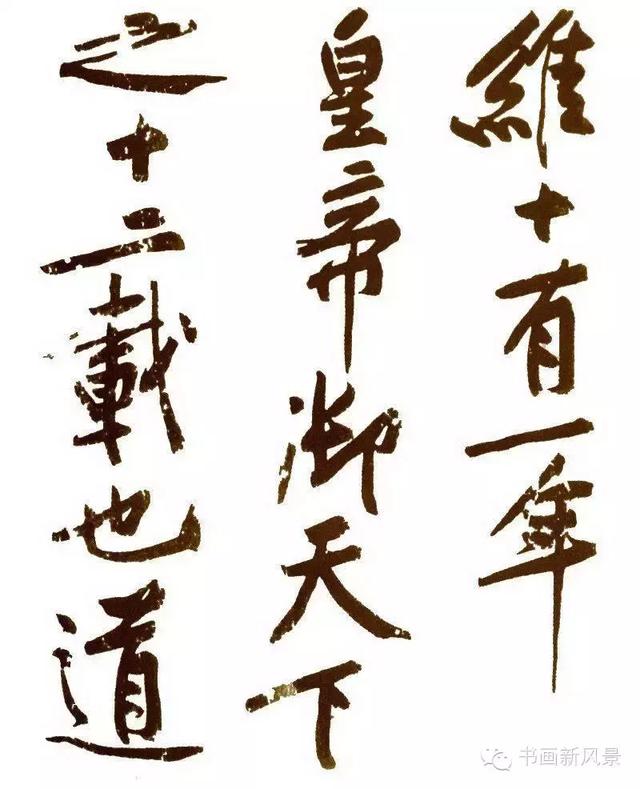 維十有一年
皇帝御天下
之十二載也道
书画新风景